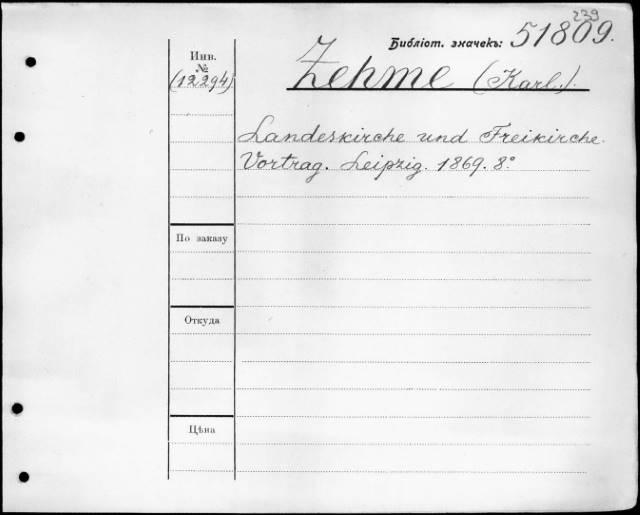 239
Библіот. значекъ: 51809.
Инв.
№
(12294)
Zehme (Karl.).
Landeskirche und Freikirche.
Vortrag. Leipzig. 1869. 8°
По заказу
Откуда
Цѣна